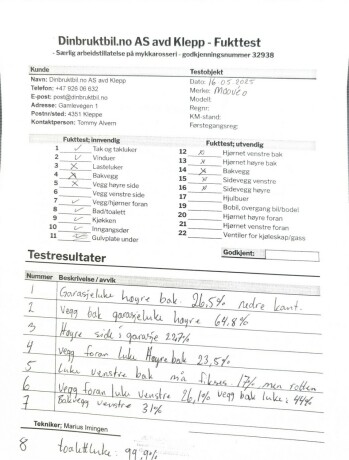 Dinbruktbil.no AS avd Klepp - Fukttest
- Særlig arbeidstillatelse på mykkarosseri - godkjenningsnummer 32938
Kunde
Testobjekt
Navn: Dinbruktbil.no AS avd Klepp
Telefon: +47 926 06 632
E-post: post@dinbruktbil.no
Adresse: Gamlevegen 1
Postnr/sted: 4351 Kleppe
Kontaktperson: Tommy Alvern
Dato: 16.05.2025
Merke: Mooveo
Modell:
Regnr:
KM-stand:
Førstegangsreg:
Fukttest; innvendig
1 ✓ Tak og takluker
2 ✓ Vinduer
3 x Lasteluker
4 x Bakvegg
5 x Vegg høyre side
6 Vegg venstre side
7 ✓ Vegg/hjørner foran
8 ✓ Bad/toalett
9 ✓ Kjøkken
10 ✓ Inngangsdør
11 ✓ Gulvplate under
Fukttest; utvendig
12 x Hjørnet venstre bak
13 x Hjørnet høyre bak
14 x Bakvegg
15 x Sidevegg venstre
16 x Sidevegg høyre
17 Hjulbuer
18 Bobil, overgang bil/bodel
19 Hjørnet høyre foran
20 Hjørnet venstre foran
21 Ventiler for kjøleskap/gass
22
Godkjent:
Testresultater
Nummer Beskrivelse / avvik
1 Garasjeluke høyre bak 26,5% nedre kant.
2 Vegg bak garasjeluke høyre 64,8%
3 Høyre side i garasje 22,7%
4 Vegg foran luke Høyre bak 23,5%
5 Luke venstre bak må fikses 17% men rotten
6 Vegg foran luke venstre 26,1% vegg bak luke: 44%
7 Bakvegg venstre 31%
Tekniker; Marius Imingen
8 toalettluke: 99,9%